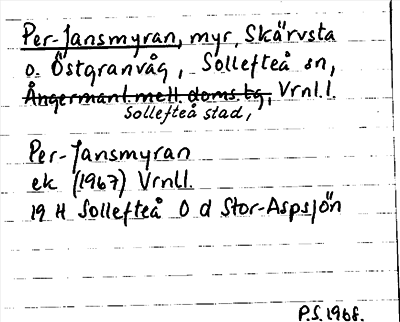 Per-Jansmyran, myr, Skärvsta
o. Östgranvåg, Sollefteå sn,
Ångermanl. mell. doms. tg, Vrnl.l.
Sollefteå stad,
Per-Jansmyran
ek (1967) Vrnll.
19 H Sollefteå O d Stor-Aspsjön
P.S. 1968.